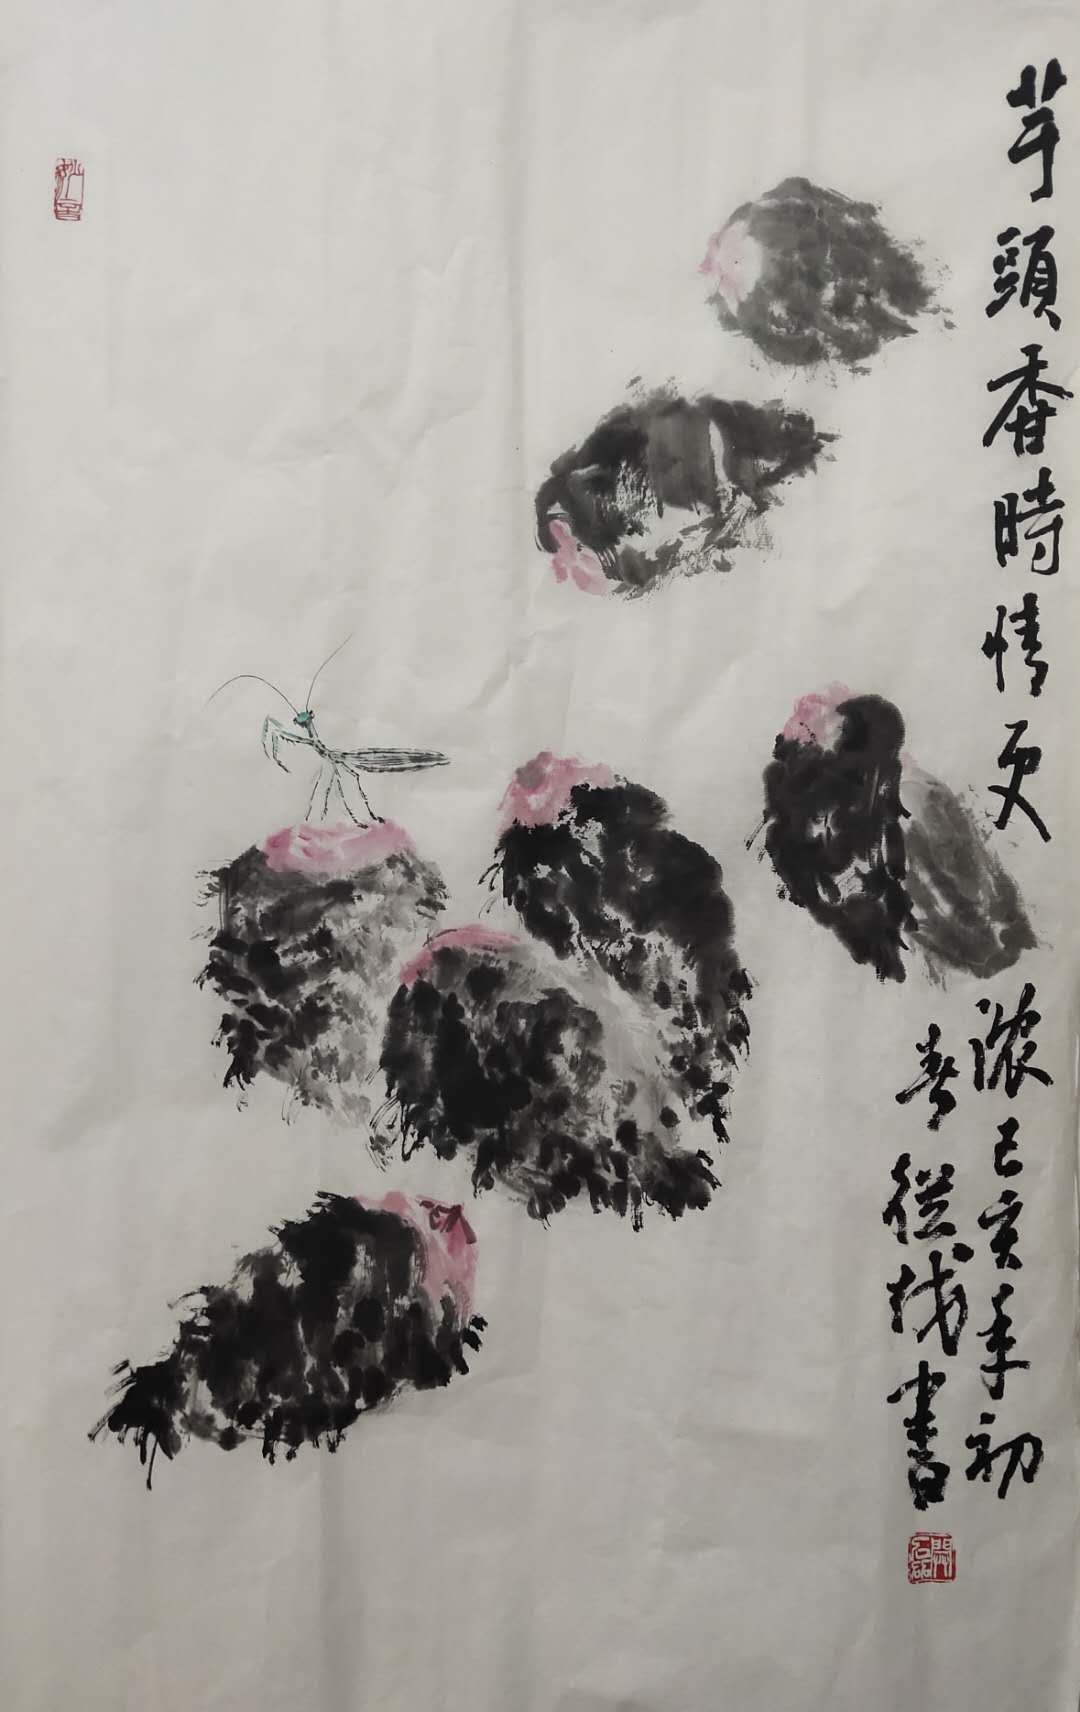 芋頭香時情更浓己亥年初
春從栈書